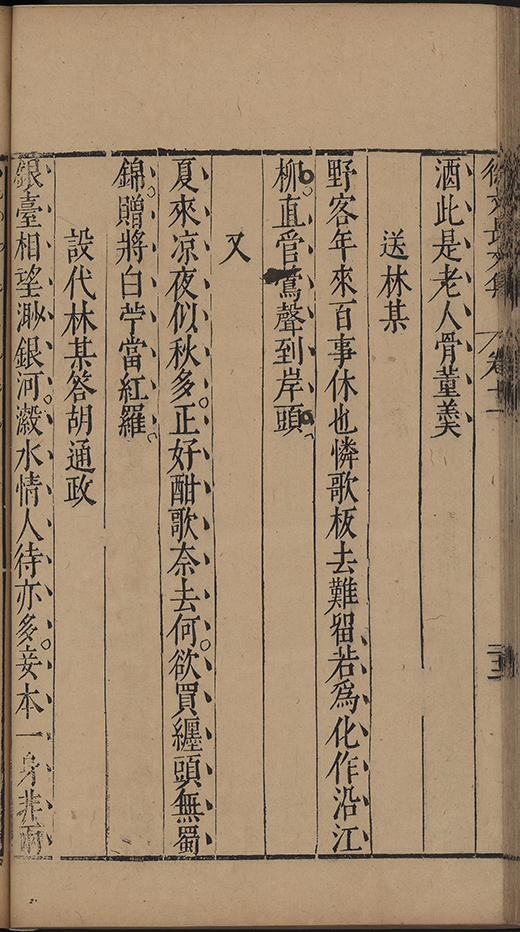 徐文長文集 卷十一
酒此是老人骨董羹
送林某
野客年來百事休也憐歌板去難留若爲化作沿江
柳直管鶯聲到岸頭
又
夏來凉夜似秋多正好酣歌奈去何欲買纏頭無蜀
錦贈將白苧當紅羅
設代林某答胡通政
銀臺相望渺銀河瀔水情人待亦多妾本一身非兩